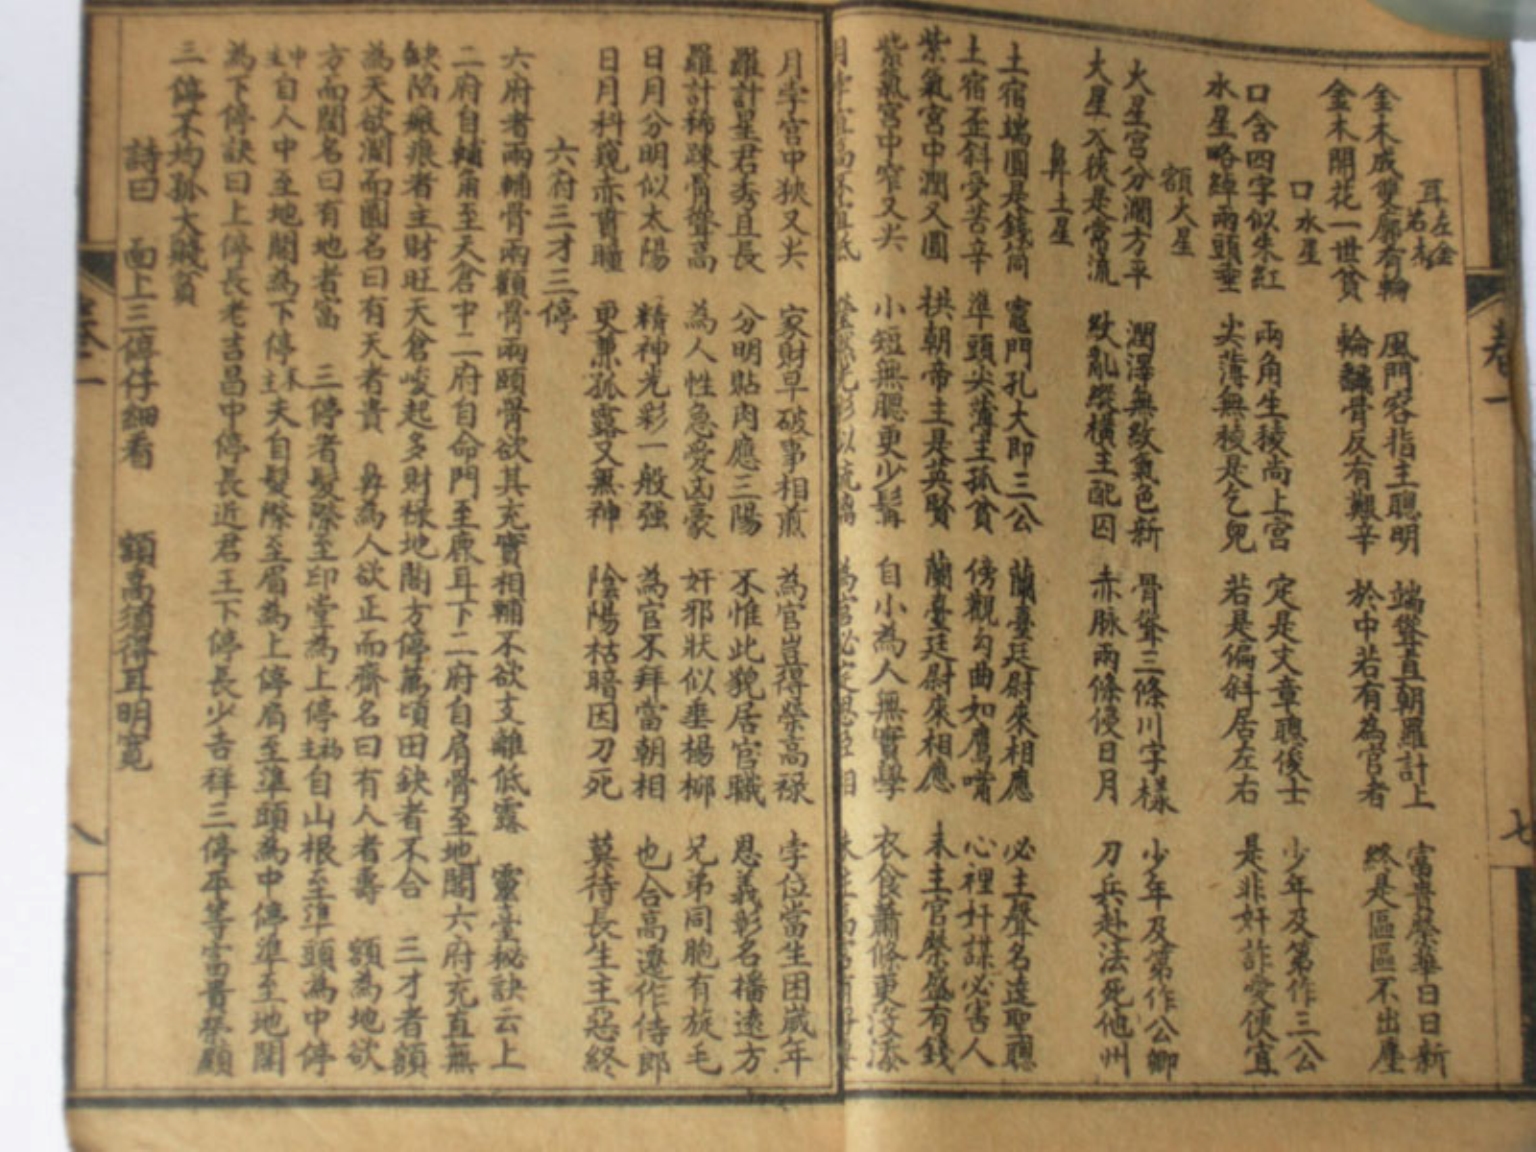 耳左金右木
金木成雙廓有輪 風門容指主聰明 端聳直朝羅計上 富貴榮華日日新
金木開花一世貧 輪飜骨反有艱辛 於中若有為官者 終是區區不出塵
口水星
口含四字似朱紅 兩角生稜尚上宮 定是文章聰俊士 少年及第作三公
水星略綽兩頭垂 尖薄無稜是乞兒 若是偏斜居左右 是非奸詐愛便宜
額火星
火星宮分濶方平 潤澤無紋氣色新 骨聳三條川字樣 少年及第作公卿
火星入後是常流 紋亂縱橫主配囚 赤脉兩條侵日月 刀兵赴法死他州
鼻土星
土宿端圓是錢筒 竈門孔大即三公 蘭臺廷尉來相應 必主聲名達聖聰
土宿歪斜受苦辛 準頭尖薄主孤貧 傍觀勾曲如鷹嘴 心裡奸謀必害人
紫氣宮中濶又圓 拱朝帝主是英賢 蘭臺廷尉來相應 末主官榮盛有錢
紫氣宮中窄又尖 小短無腮更少髯 自小為人無實學 衣食蕭條更沒添
月孛宮高不宜低
月孛宮中狹又尖 家財早破事相煎 為官豈得榮高祿 孛位當生困歲年
羅計星君秀且長 分明貼肉應三陽 不惟此貌居官職 恩義彰名播遠方
羅計稀踈骨聳高 為人性急愛凶豪 奸邪狀似垂楊柳 兄弟同胞有旋毛
日月分明似太陽 精神光彩一般强 為官不拜當朝相 也合高遷作侍郎
日月斜窺赤貫瞳 更兼孤露又無神 陰陽枯暗因刀死 莫待長生主惡終
六府三才三停
六府者兩輔骨兩顴骨兩頤骨欲其充實相輔不欲支離低露 靈臺秘訣云上
二府自輔角至天倉中二府自命門至虎耳下二府自肩骨至地閣六府充直無
缺陷瘢痕者主財旺天倉峻起多財祿地閣方停萬頃田缺者不合 三才者額
為天欲濶而圓名曰有天者貴 鼻為人欲正而齊名曰有人者壽 頦為地欲
方而闊名曰有地者富 三停者髮際至印堂為上停主初自山根至準頭為中停
主中自人中至地閣為下停主末夫自髮際至眉為上停眉至準頭為中停準至地閣
為下停訣曰上停長老吉昌中停長近君王下停長少吉祥三停平等富貴榮顯
三停不均孤夭賤貧
詩曰 面上三停仔細看 額高須得耳明寛
卷一 七
卷一 八